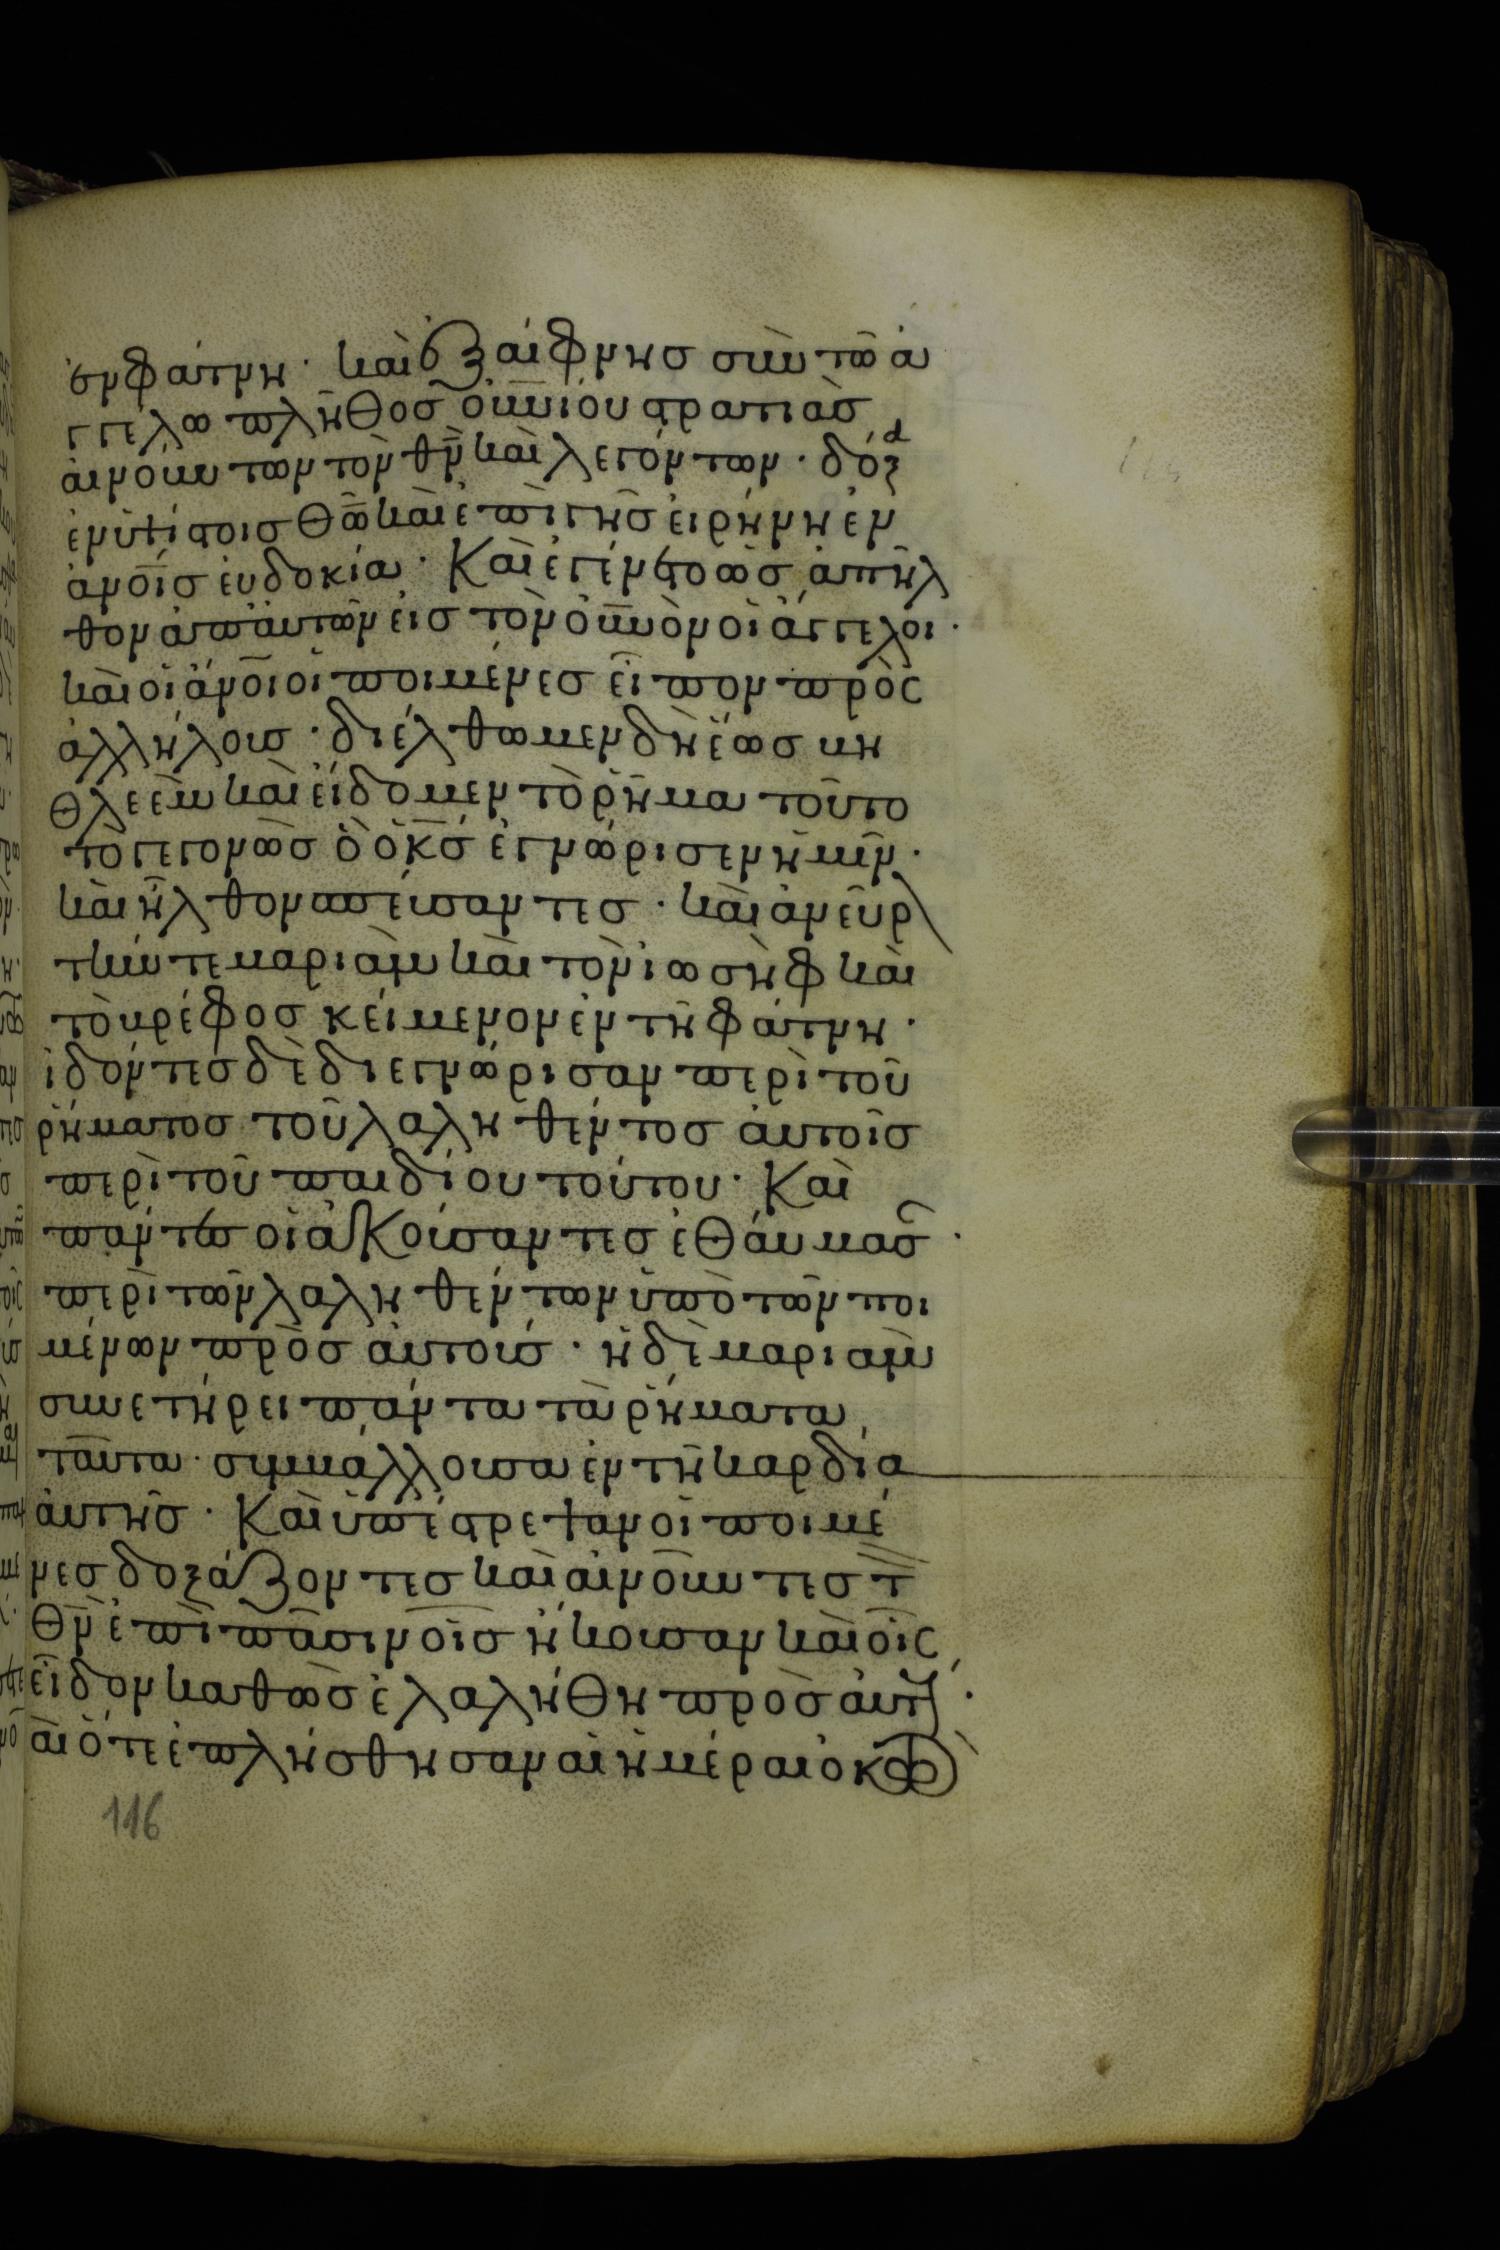 ἐν φάτνη · καὶ ἐξαίφνησ σὺν τῶ ἀ
γγέλω πλῆθοσ οὐνίου στρατιᾶσ
αἰνούντων τὸν θν̄ καὶ λεγόντων · δόξα
ἐν ὑψίστοισ Θω̄ καὶ ἐπὶ γῆσ εἰρήνη ἐν
ἀνοῖσ ἐυδοκία · Καὶ ἐγένετο ὡσ ἀπῆλ
θον ἀπ' ἀυτῶν εἰσ τὸν οὐνὸν οἱ ἄγγελοι ·
καὶ οἱ ἄνοι οἱ ποιμένεσ εἶπον πρὸς
ἀλλήλουσ · διέλθωμεν δὴ ἕωσ βη
θλεὲμ καὶ εἴδομεν τὸ ρῆμα τοῦτο
τὸ γεγονὼσ ὃ ὁ κσ̄ ἐγνώρισεν ἡμῖν ·
καὶ ἦλθον σπεύσαντεσ · καὶ ἀνεῦρ
τήν τε μαριὰμ καὶ τὸν ἰωσὴφ καὶ
τὸ βρέφοσ κείμενον ἐν τῆ φάτνη ·
ἰδόντεσ δὲ διεγνώρισαν περὶ τοῦ
ρήματοσ τοῦ λαληθέντοσ ἀυτοῖσ
περὶ τοῦ παιδίου τούτου · Καὶ
πάντεσ οἱ ἀκούσαντεσ ἐθάυμασ ·
περὶ τῶν λαληθέντων ὑπὸ τῶν ποι
μένων πρὸσ ἀυτούσ · ἡ δὲ μαριὰμ
συνετήρει πάντα τὰ ρήματα
ταῦτα · συμβάλλουσα ἐν τῆ καρδία
ἀυτῆσ · Καὶ ὑπέστρεψαν οἱ ποιμέ
νεσ δοξάζοντεσ καὶ αἰνοῦντεσ τ
Θν̄ ἐπὶ πᾶσιν οἷσ ἤκουσαν καὶ οἷς
εἶδον καθὼσ ἐλαλήθη πρὸσ ἀυτ ·
αὶ ὅτε ἐπλήσθησαν αἱ ἡμέραι ὀκτὼ
116